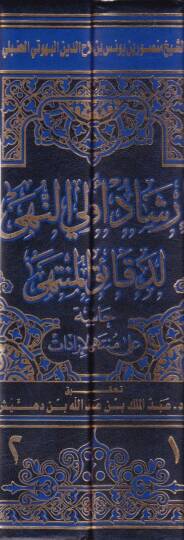 الشيخ منصور بن يونس بن صلاح الدين البهوتي الحنبلي
إرشاد أولي النهى
لدقائق المنتهى
حاشية
على منتهى الإرادات
تحقيق
د. عبد الملك بن عبد الله بن دهيش
١
٢